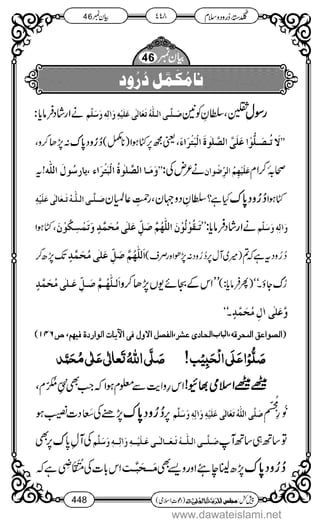 بیان نمبر 46
٤٤٨
گلدستۂ درود و سلام
بیان نمبر 46
نامُکَمَّل دُرُود
رسولِ ثقلین، سلطانِ کونین صَلَّی اللہُ تَعَالٰی عَلَیْہِ وَاٰلِہٖ وَسَلَّم نے ارشاد فرمایا:
”لَا تُصَلُّوْا عَلَیَّ الصَّلٰوۃَ الْبَتْرَاءَ، یعنی مجھ پر نامکمل دُرُودِ پاک نہ پڑھا کرو،
صحابہ کرام عَلَیْہِمُ الرِّضْوَان نے عرض کی: ”وَمَا الصَّلٰوۃُ الْبَتْرَاءُ، یارسولَ اللہ! یہ
نامکمل دُرُودِ پاک کیا ہے؟ سلطانِ دو جہاں، رحمتِ عالمیان صَلَّی اللہُ تَعَالٰی عَلَیْہِ
وَاٰلِہٖ وَسَلَّم نے ارشاد فرمایا: ”تَقُوْلُوْنَ اَللّٰہُمَّ صَلِّ عَلٰی مُحَمَّدٍ وَّتُمْسِکُوْنَ،
دُرُود یہ ہے کہ تم (میری آل پر دُرُود نہ پڑھو اور صرف) اَللّٰہُمَّ صَلِّ عَلٰی مُحَمَّدٍ تک پڑھ کر
رُک جاؤ۔“ (پھر فرمایا:) ”اس کے بجائے یوں پڑھا کرو اَللّٰہُمَّ صَلِّ عَلٰی مُحَمَّدٍ
وَّعَلٰی اٰلِ مُحَمَّدٍ“۔
(الصواعق المحرقہ، الباب الحادی عشر، الفصل الاول فی الآیات الواردۃ فیھم، ص ١٣٦)
صَلُّوْا عَلَی الْحَبِیْب! صَلَّی اللہُ تَعَالٰی عَلٰی مُحَمَّد
میٹھے میٹھے اسلامی بھائیو! اس روایت سے معلوم ہوا کہ جب بھی نبیِّ مُکَرَّم،
نُورِ مُجَسَّم صَلَّی اللہُ تَعَالٰی عَلَیْہِ وَاٰلِہٖ وَسَلَّم پر دُرُودِ پاک پڑھنے کی سعادت نصیب ہو
تو ساتھ ہی ساتھ آپ صَلَّی اللہُ تَعَالٰی عَلَیْہِ وَاٰلِہٖ وَسَلَّم کی آلِ پاک پر بھی
دُرُودِ پاک پڑھ لینا چاہئے اور ویسے بھی مَحَبَّت اس بات کی مُتَقاضی ہے کہ
448
www.dawateislami.net